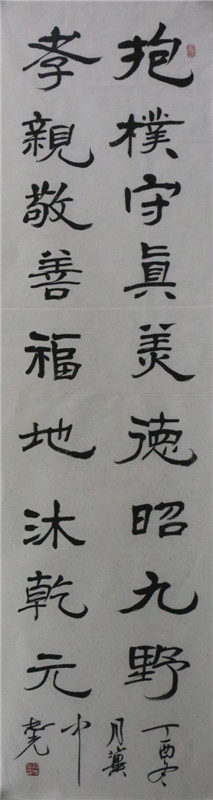 抱樸守真美德昭九野
孝親敬善福地沐乾元
丁酉冬
月冀
中